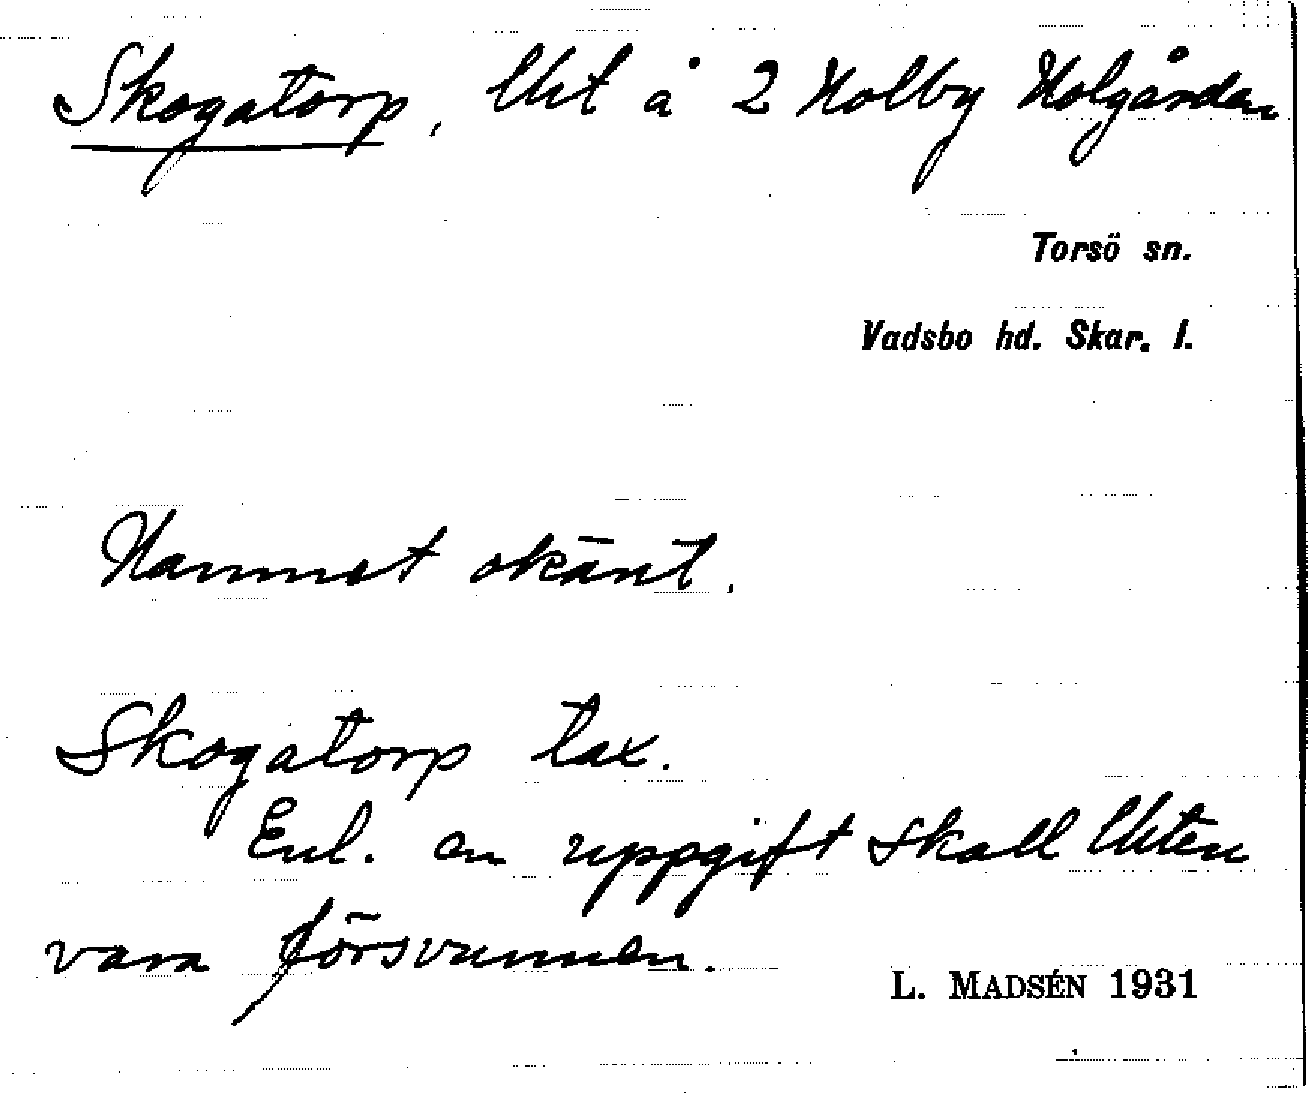 Skogatorp, lht å 2 Nolby Nolgården
Torsö sn.
Vadsbo hd. Skar. l.
Namnet okänt.
Skogatorp tax.
Enl. en uppgift skall lhten
vara försvunnen.
L. MADSÉN 1931